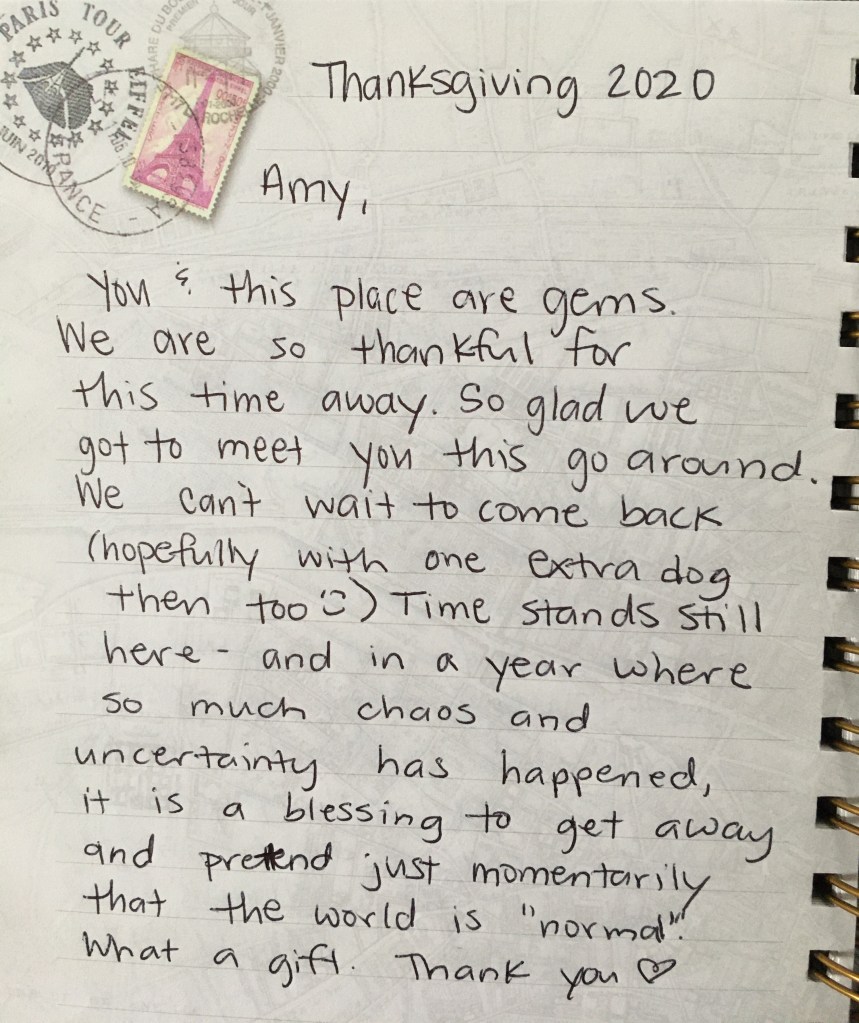 PARIS TOUR EIFFEL
JUIN 20
FRANCE
Thanksgiving 2020
Amy,
You & this place are gems.
We are so thankful for
this time away. So glad we
got to meet you this go around.
We can't wait to come back
(hopefully with one extra dog
then too :) ) Time stands still
here - and in a year where
so much chaos and
uncertainty has happened,
it is a blessing to get away
and pretend just momentarily
that the world is "normal".
What a gift. Thank you ♡